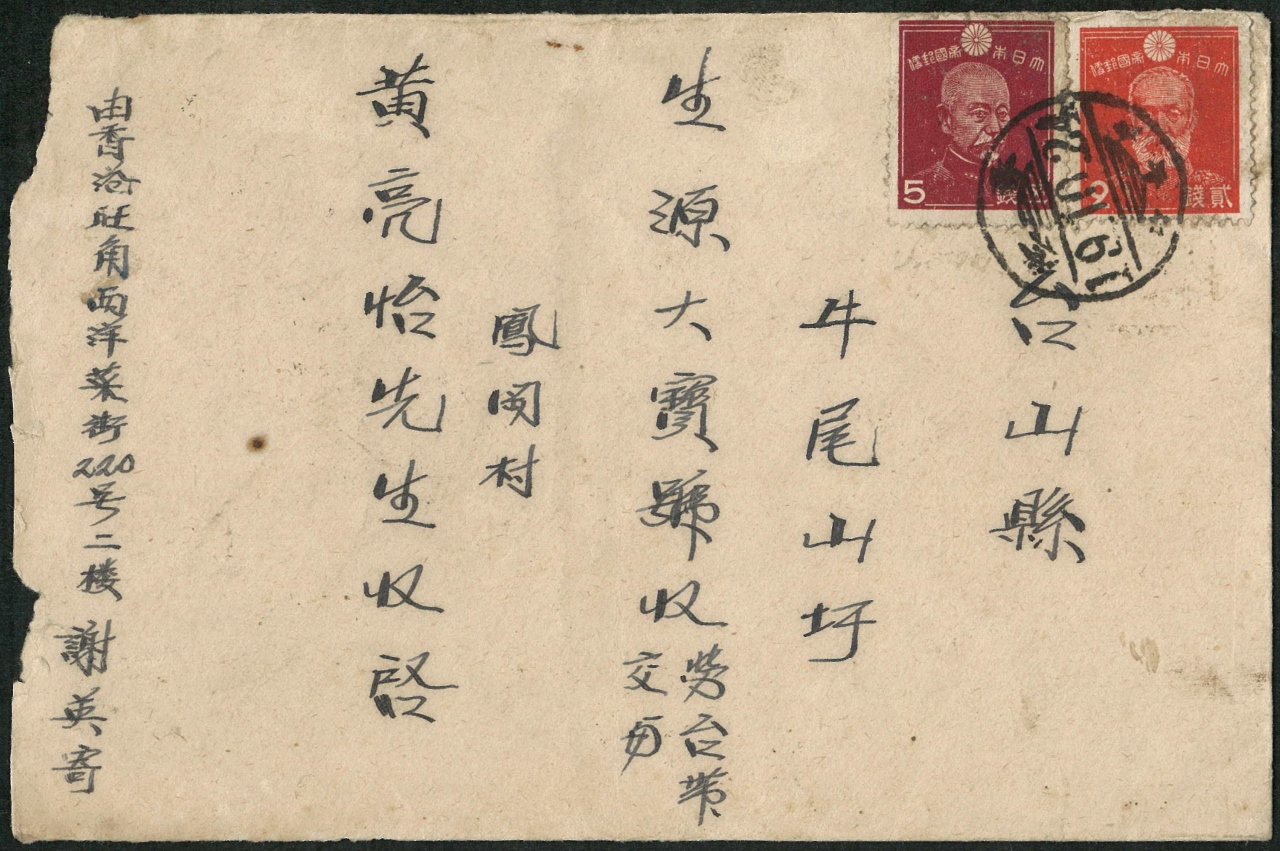 大日本帝國郵便
5 五錢
大日本帝國郵便
2 貳錢
19.10.24
台山縣
牛尾山圩
生源大寶號收
勞台带
交与
鳳岡村
黃亮怡先生收啓
由香港旺角西洋菜街220号二楼 謝英寄